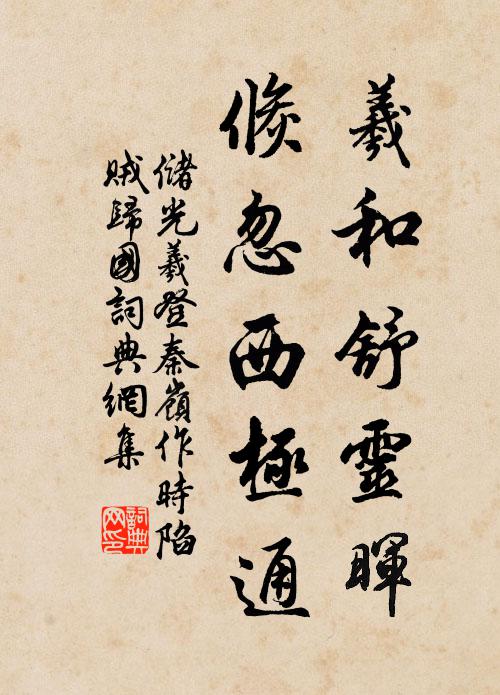 羲和舒靈暉
倏忽西極通
儲光羲登秦嶺作時陷
賊歸國詞典網集
詞典網印